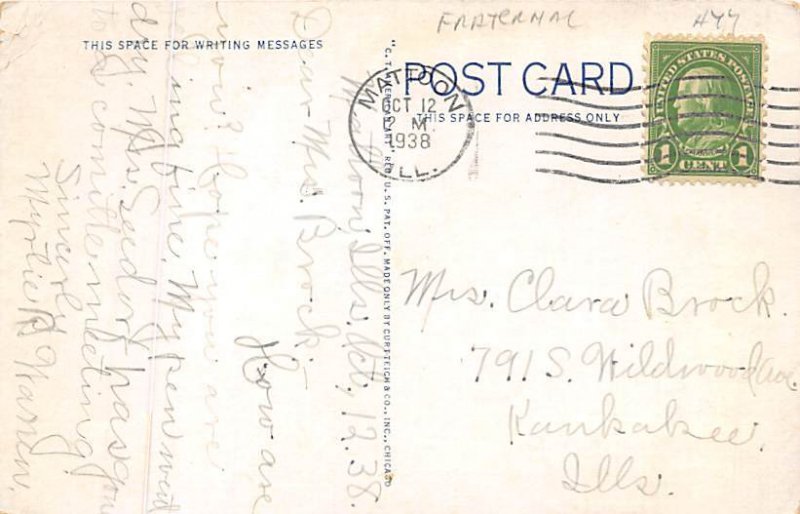 FRATERNAL
THIS SPACE FOR WRITING MESSAGES
POST CARD
THIS SPACE FOR ADDRESS ONLY
MATTOON
OCT 12
M
1938
ILL.
UNITED STATES POSTAGE
1 CENT 1
"C.T. AMERICAN ART" REG. U.S. PAT. OFF. MADE ONLY BY CURT TEICH & CO., INC., CHICAGO
Mattoon Ills. Oct, 12. 38.
Dear Mrs. Brock.
How are
you? Hope you are
fine. My pen went
dry. Mrs. Seed has gone
to a meeting
Sincerly
Myrtie Warren.
Mrs. Clara Brock.
791 S. Wildwood Ave.
Kankakee.
Ills.